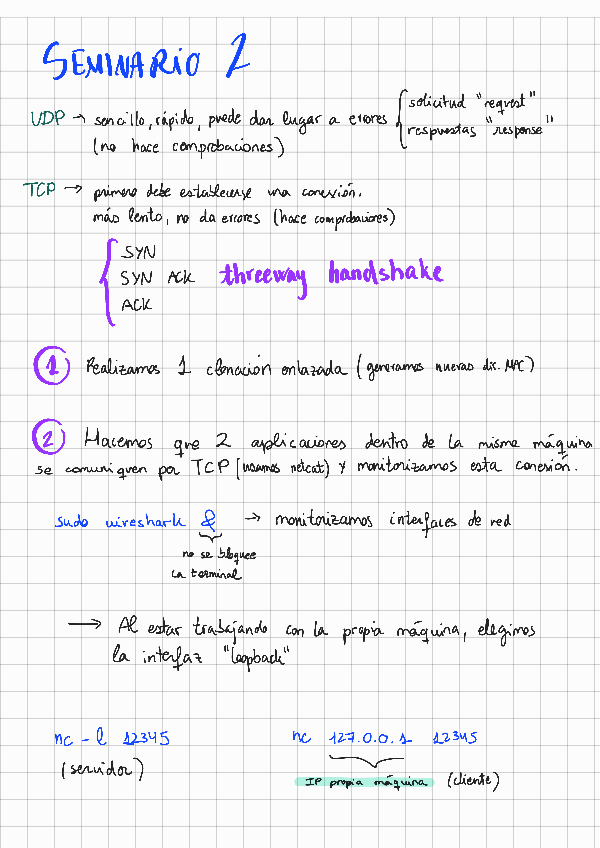 SEMINARIO 2
UDP → sencillo, rápido, puede dar lugar a errores { solicitud "request"
respuestas "response"
(no hace comprobaciones)
TCP → primero debe establecerse una conexión.
más lento, no da errores (hace comprobaciones)
SYN
SYN ACK threeway handshake
ACK
1 Realizamos 1 clonación enlazada (generamos nuevas dir. MAC)
2 Hacemos que 2 aplicaciones dentro de la misma máquina
se comuniquen por TCP (usamos netcat) y monitorizamos esta conexión.
sudo wireshark & → monitorizamos interfaces de red
no se bloquee
la terminal
→ Al estar trabajando con la propia máquina, elegimos
la interfaz "loopback"
nc -l 12345 nc 127.0.0.1 12345
(servidor) IP propia máquina (cliente)